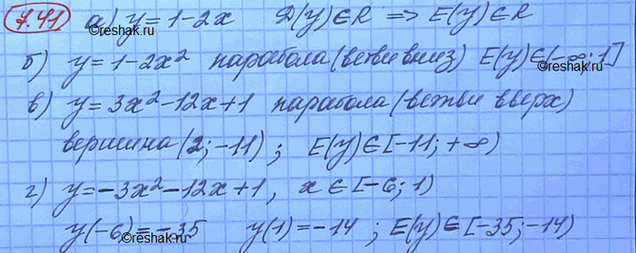 7.41 а) y = 1-2x D(y)∈R => E(y)∈R
б) y = 1-2x² парабола (ветви вниз) E(y)∈(-∞; 1]
©reshak.ru
©reshak.ru
в) y = 3x²-12x+1 парабола (ветви вверх)
вершина (2; -11); E(y)∈[-11; +∞)
г) y = -3x²-12x+1, x∈[-6; 1)
y(-6) = -35 y(1) = -14 ; E(y)∈[-35; -14)
©reshak.ru